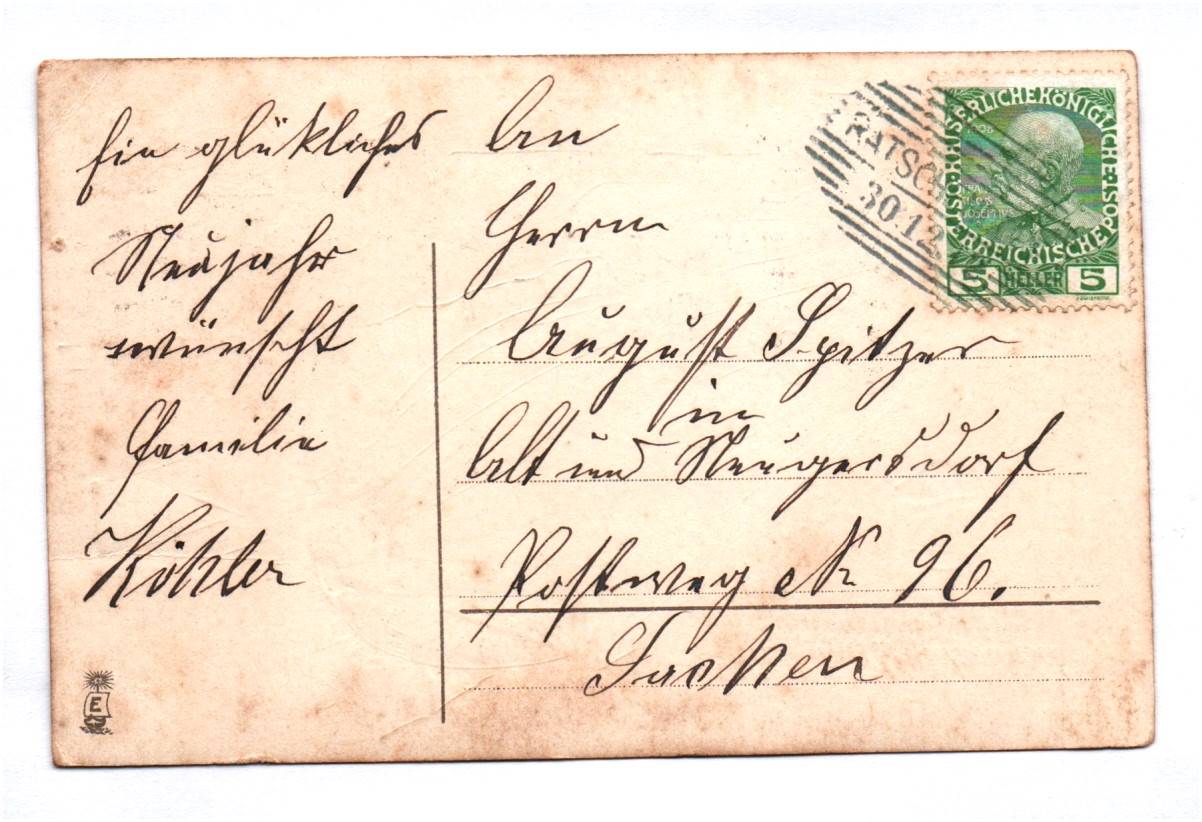 Ein glükliches
Neujahr
wünscht
Familie
Köhler
E
An
Herrn
August Spitzer
in
Alt und Neugersdorf
Postweg No 96.
Sachsen
RATSCH
30.12
KAISERLICHEKÖNIGLICHE
ÖSTERREICHISCHEPOST
1908
JOSEPHVS
5 HELLER 5